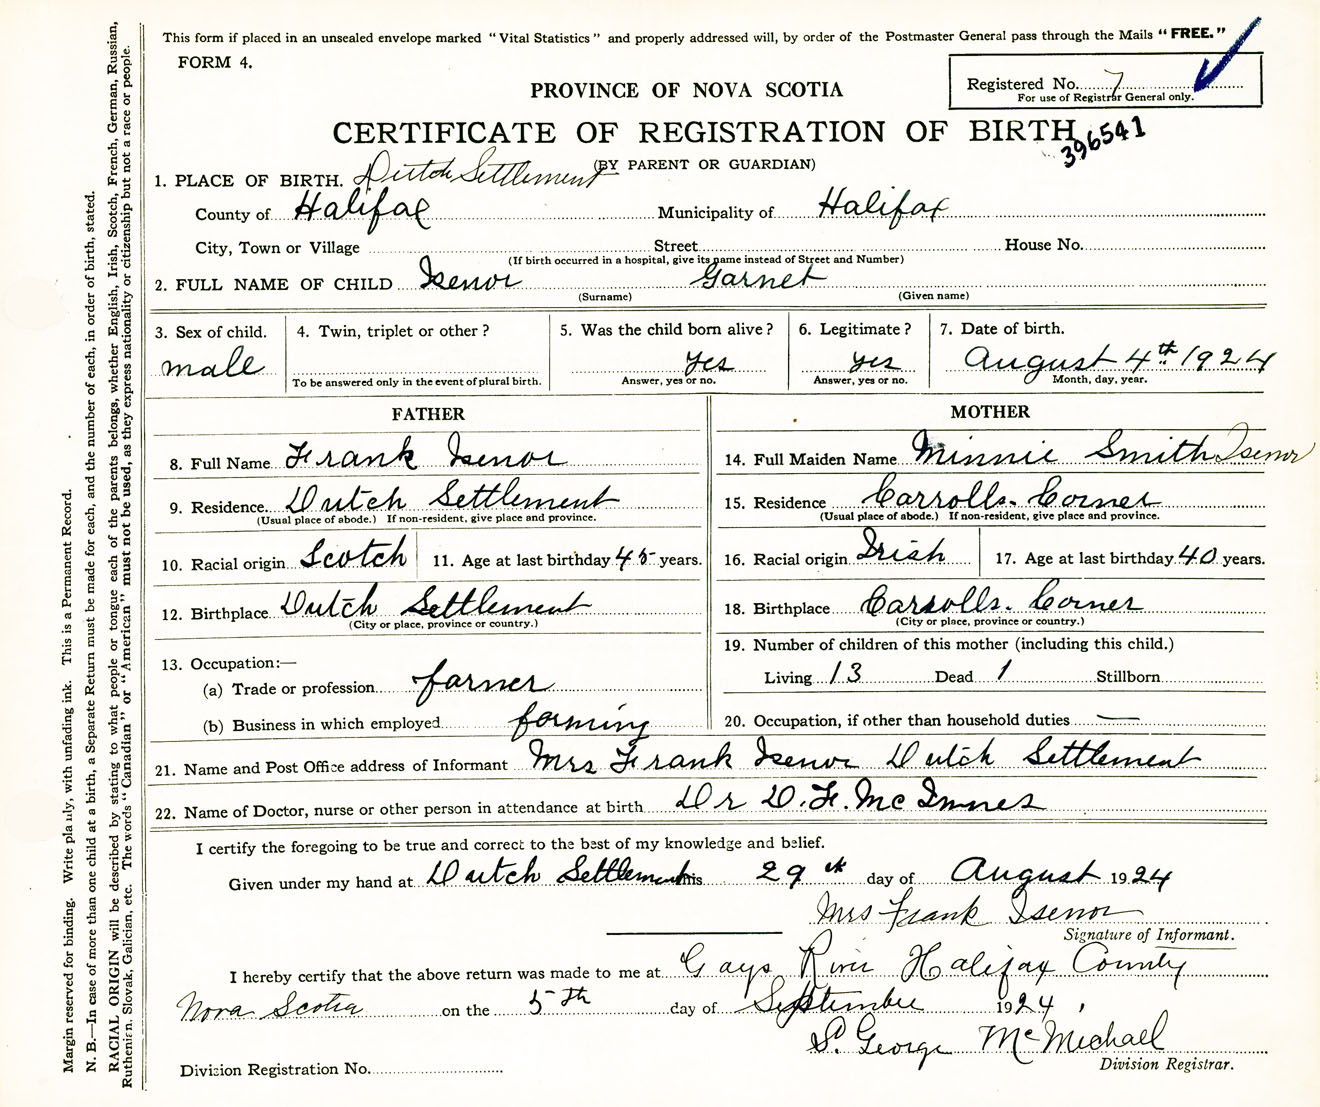 This form if placed in an unsealed envelope marked "Vital Statistics" and properly addressed will, by order of the Postmaster General pass through the Mails "FREE."
FORM 4.
Registered No. 7
For use of Registrar General only.
PROVINCE OF NOVA SCOTIA
CERTIFICATE OF REGISTRATION OF BIRTH
396541
(BY PARENT OR GUARDIAN)
1. PLACE OF BIRTH. Dutch Settlement
County of Halifax Municipality of Halifax
City, Town or Village Street House No.
(If birth occurred in a hospital, give its name instead of Street and Number)
2. FULL NAME OF CHILD Isenor Garnet
(Surname) (Given name)
3. Sex of child. 4. Twin, triplet or other? 5. Was the child born alive? 6. Legitimate? 7. Date of birth.
male yes yes August 4th 1924
To be answered only in the event of plural birth. Answer, yes or no. Answer, yes or no. Month, day, year.
FATHER MOTHER
8. Full Name Frank Isenor 14. Full Maiden Name Minnie Smith Isenor
9. Residence. Dutch Settlement 15. Residence Carrolls. Corner
(Usual place of abode.) If non-resident, give place and province. (Usual place of abode.) If non-resident, give place and province.
10. Racial origin Scotch 11. Age at last birthday 45 years. 16. Racial origin Irish 17. Age at last birthday 40 years.
12. Birthplace Dutch Settlement 18. Birthplace Carrolls. Corner
(City or place, province or country.) (City or place, province or country.)
19. Number of children of this mother (including this child.)
13. Occupation:—
Living 13 Dead 1 Stillborn
(a) Trade or profession farmer
(b) Business in which employed farming 20. Occupation, if other than household duties —
21. Name and Post Office address of Informant Mrs Frank Isenor Dutch Settlement
22. Name of Doctor, nurse or other person in attendance at birth Dr D. F. McInnes
I certify the foregoing to be true and correct to the best of my knowledge and belief.
Given under my hand at Dutch Settlement this 29th day of August 1924
Mrs Frank Isenor
Signature of Informant.
I hereby certify that the above return was made to me at Gays River Halifax County
Nova Scotia on the 5th day of September 1924,
S. George McMichael
Division Registration No. Division Registrar.
Margin reserved for binding. Write plainly, with unfading ink. This is a Permanent Record.
N. B.—In case of more than one child at a birth, a Separate Return must be made for each, and the number of each, in order of birth, stated.
RACIAL ORIGIN will be described by stating to what people or tongue each of the parents belongs, whether English, Irish, Scotch, French, German, Russian,
Ruthenian, Slovak, Galician, etc. The words "Canadian" or "American" must not be used, as they express nationality or citizenship but not a race or people.